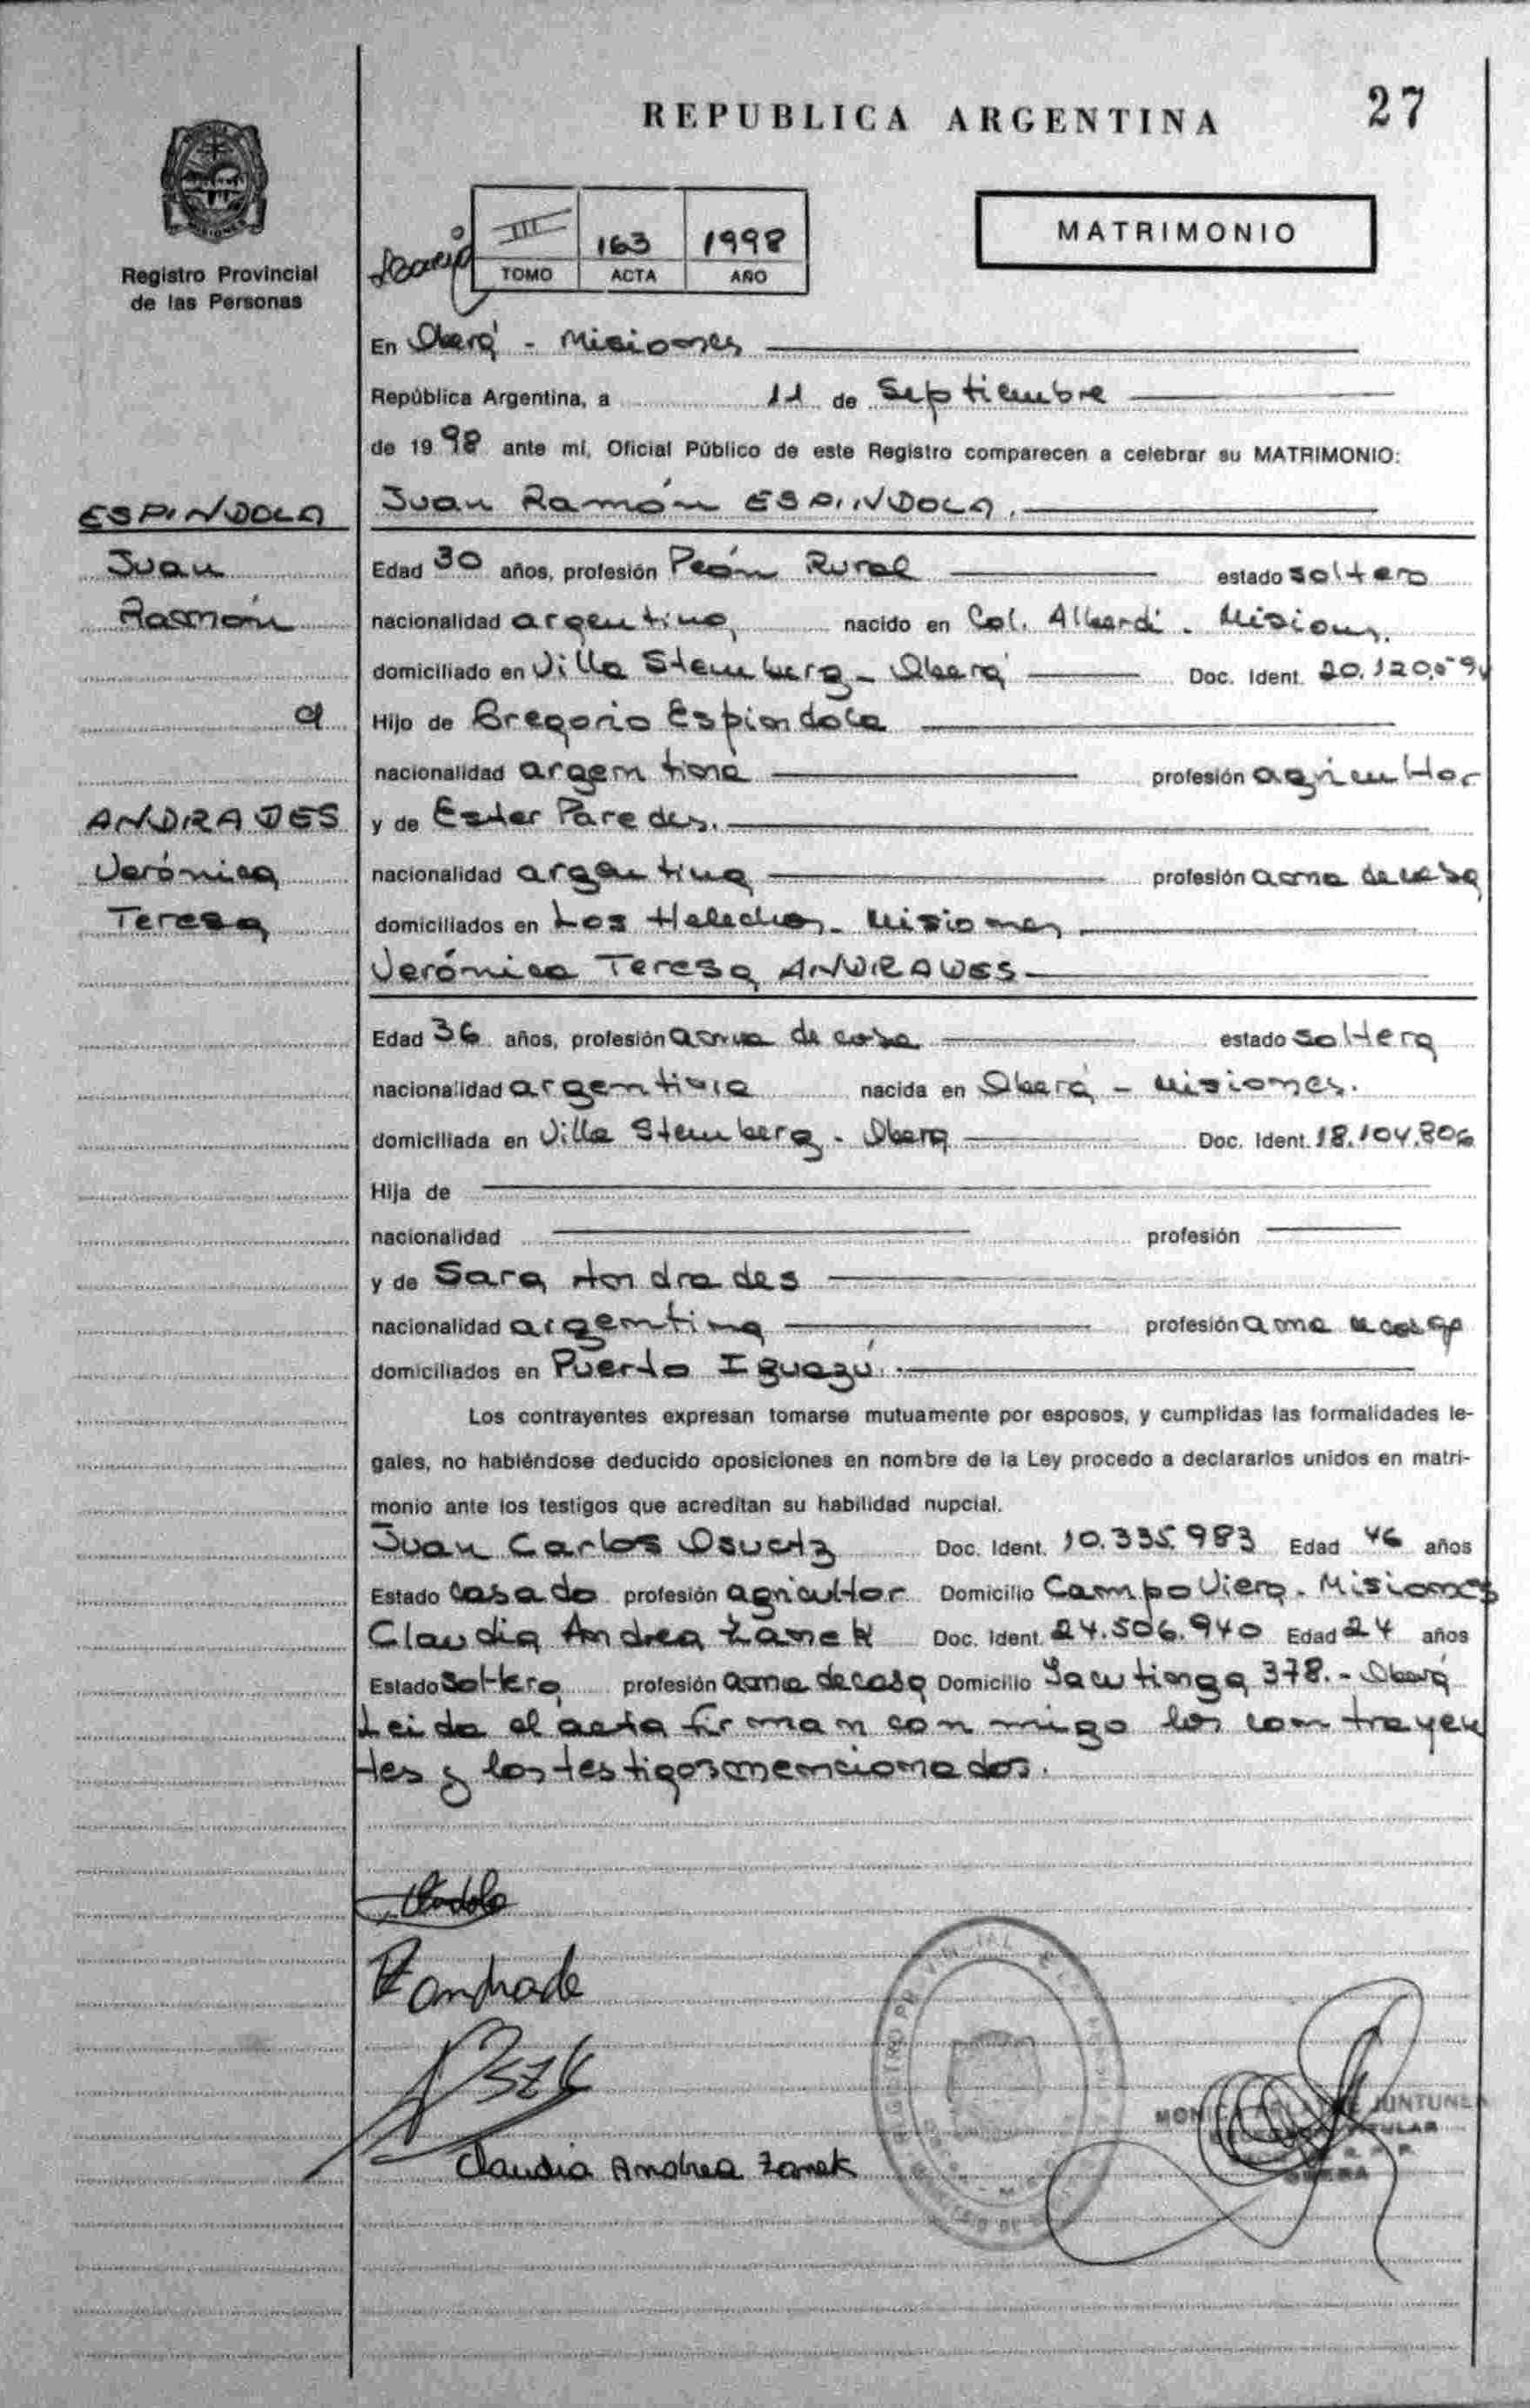 REPUBLICA ARGENTINA
27
Registro Provincial
de las Personas
III 163 1998
TOMO ACTA AÑO
MATRIMONIO
En Oberá - Misiones
República Argentina, a 11 de Septiembre
de 1998 ante mí, Oficial Público de este Registro comparecen a celebrar su MATRIMONIO:
ESPINDOLA
Juan Ramón ESPINDOLA.
Juan
Edad 30 años, profesión Peón Rural estado soltero
Ramón
nacionalidad argentina, nacido en Col. Alberdi - Misiones.
domiciliado en Villa Stemberg - Oberá Doc. Ident.
Hijo de Gregorio Espindola
nacionalidad argentina profesión agricultor
ANDRADES
y de Ester Paredes.
Verónica
nacionalidad argentina profesión ama de casa
Teresa
domiciliados en Los Helechos - Misiones
Verónica Teresa ANDRADES
Edad 36 años, profesión ama de casa estado soltera
nacionalidad argentina nacida en Oberá - Misiones.
domiciliada en Villa Stemberg - Oberá Doc. Ident. 18.104.806
Hija de
nacionalidad profesión
y de Sara Andrades
nacionalidad argentina profesión ama de casa
domiciliados en Puerto Iguazú.
Los contrayentes expresan tomarse mutuamente por esposos, y cumplidas las formalidades le-
gales, no habiéndose deducido oposiciones en nombre de la Ley procedo a declararlos unidos en matri-
monio ante los testigos que acreditan su habilidad nupcial.
Juan Carlos Doc. Ident. 10.335.983 Edad 46 años
Estado casado profesión agricultor Domicilio Campo Viera - Misiones
Claudia Andrea Zanek Doc. Ident. 24.506.940 Edad 24 años
Estado soltera profesión ama de casa Domicilio Yacutinga 378.- Oberá
Leida el acta firman conmigo los contrayen
tes y los testigos mencionados.
Andrade
Claudia Andrea Zanek
REGISTRO PROVINCIAL
OBERA